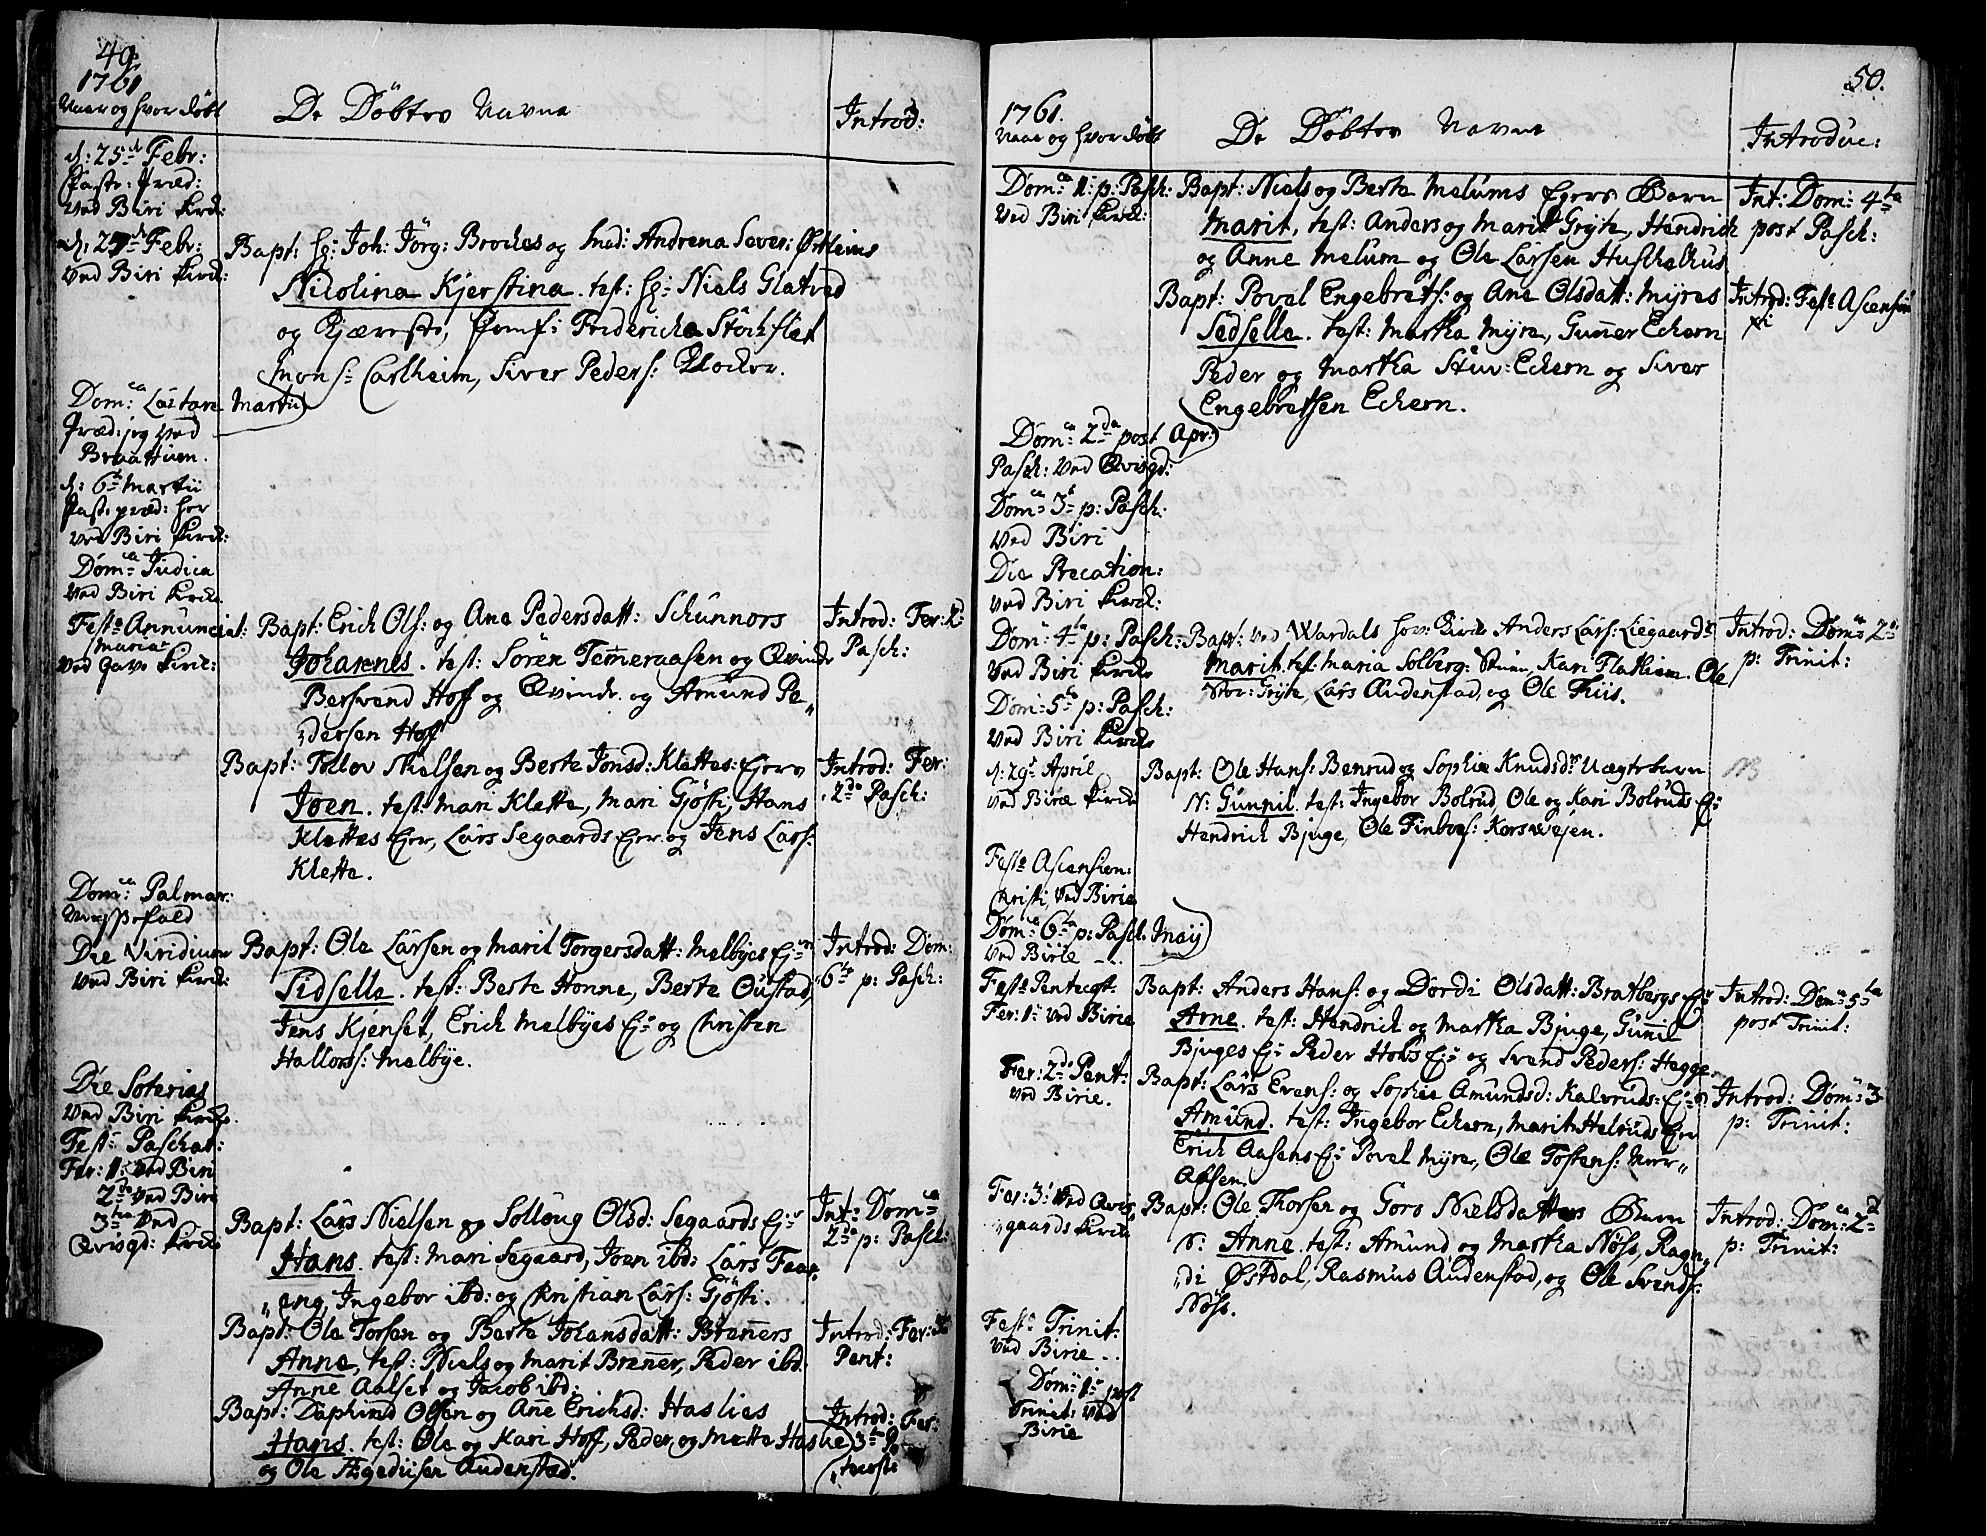 49.
1761
Naar og hvor døbt
De Døbtes Navne
Introd:
d: 25de Febr:
Past: Præd:
Ved Biri Kirch:
d: 27de Febr:
Ved Biri Kirch:
Bapt: Hr: Joh: Jörg: Broches og Mad: Andrena Sever: Örtheims
Nicolina Kjerstina. test: Hr: Niels Glatved
og Kjæreste, Jomf: Fridericha Stöchflet
Mons: Carlheim, Siver Peders: Klocker.
Domca: Lætare Martii
Præd: jeg ved
Braathuen.
d: 6te Martii
Past: præd: her
ved Biri Kirch:
Domca Judica
Ved Biri Kirche
Festo Annunciat:
Mariæ
Ved Gave Kirch:
Bapt: Erich Ols: og Ane Pedersdatt: Schunnors
Johannes. test: Sören Temeraasen og Qvinde
Bersvend Hoff og Qvinde. og Amund Pe„
„dersen Hoff
Introd: Fer: 2
Pasch:
Bapt: Tollov Nielsen og Berte Jonsd: Klettes: Ejere
Joen. test: Mari Klette, Mari Gjösti, Hans
Klettes Ejer, Lars Segaards Ejer og Jens Lars:
Klette.
Introd: Fer:
2de Pasch:
Domca: Palmar:
Messefald
Die Viridium
Ved Biri Kirch:
Bapt: Ole Larsen og Marit Torgersdatt: Melbyes Ej:
Sidselle. test: Berte Honne, Berte Oustad,
Jens Kjenset, Erich Melbyes Ej: og Christen
Hallors: Melbye.
Introd: Dom:
6te p: Pasch:
Die Soterias
Ved Biri Kirche
Fest: Paschat:
Fer: 1: ved Biri
2da ved Biri
3tia ved
Qvisgd: Kirche
Bapt: Lars Nielsen og Sollöug Olsd: Segaards Ej:
Hans. test: Mari Segaard, Joen ibd: Lars Faar„
„eng, Ingebor ibd: og Christian Lars: Gjösti.
Int: Domca
2da p: Pasch:
Bapt: Ole Torsen og Berte Johansdatt: Brenners
Anne, test: Niels og Marit Brenner, Peder ibd:
Anne Aalset og Jacob ibd:
Introd: Fer: 3
Pent:
Bapt: Daphind Olsen og Ane Erichsd: Haslies
Hans. test: Ole og Kari Hoff, Peder og Mette Haslie
og Ole Ægediisen Audenstad.
Introd: Fer:
3tia Pe
„tecoste
50.
1761.
Naar og hvor døbt
De Döbtes Navne
Introduc:
Domca 1: p: Pasch:
Ved Biri Kirch:
Bapt: Niels og Berte Melums Ejers Barn
Marit, test: Anders og Marit Gryte, Hendrich
og Anne Melum og Ole Larsen Huschelhus
Int: Dom: 4ta
post Pasch:
Bapt: Povel Engebrets: og Ane Olsdatt: Myres
Sidselle. test: Martha Myre, Gunner Echern
Peder og Martha Stuv: Echern og Siver
Engebretsen Echern.
Introd: Festo Ascension
Xi
Domca 2da post Apr:
Pasch: Ved Qvisgd:
Domca 3t p: Pasch.
Ved Biri
Die Precation:
Ved Biri Kirch:
Dom 4ta p: Pasch:
Ved Biri Kirche
Bapt: ved Wardals Hov: Kirche Anders Lars: Liegaards
Marit test: Maria Solberg: Stuen, Kari Flathiem. Ole
Stor: Gryte, Lars Audenstad, og Ole Thiis.
Introd: Domca 2
p: Trinit:
Dom: 5ta p: Pasch:
Ved Biri Kirche
d: 29t April
Ved Birie Kirche
Bapt: Ole Hans: Benrud og Sophie Knudsdr Uægte barn
N: Gunnil. test: Ingebor Bolrud, Ole og Kari Bolruds Ej:
Hendrich Bjuge, Ole Finboes: Korsvejen.
NB
Festo Ascension:
Christi, Ved Birie
Dom: 6ta p: Pasch: Maij
Ved Birie
Festo Pentecost:
Fer: 1: ved Birie
Bapt: Anders Hans: og Dordi Olsdatt: Bratbergs Ej:
Arne. test: Hendrich og Martha Bjuge, Gunnil
Bjuges Ej: Peder Hobs Ej: og Svend Peders: Hegge
Introd: Domca 5ta
post Trinit:
Fer: 2da Pent:
ved Birie.
Bapt: Lars Evens: og Sophie Amundsd: Kalvruds: Ej:
Amund. test: Ingebor Echern, Marit Helruds Ejer
Erich Aasens Ej: Povel Myre, Ole Tostens: Nerr„
Aasen.
Introd: Dom: 3
p: Trinit:
Fer: 3: Ved Qvis„
„gaards Kirche
Bapt: Ole Thorsen og Goro Nielsdatters Barn
N: Anne. test: Amund og Martha Nöss, Ragn„
„di Östdal, Rasmus Audenstad, og Ole Svends:
Nöss.
Introd: Domca 2d
p: Trinit:
Festo Trinit:
Ved Birie
Domca 1: post
Trinit: Ved
Birie